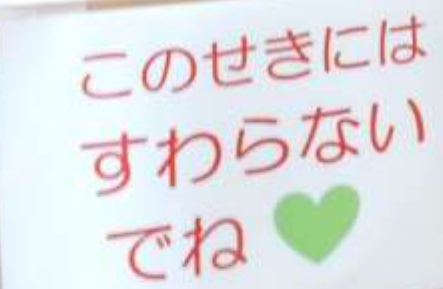 このせきには
すわらない
でね💚